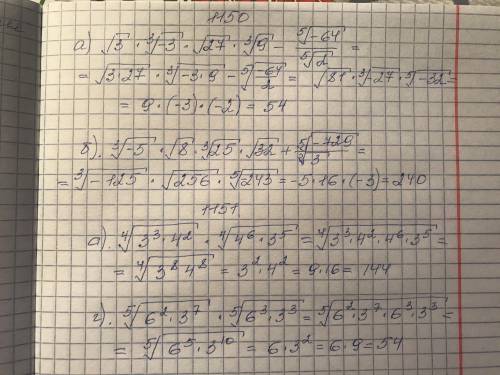 1150
а) √3 · ∛-3 · √27 · ∛9 - ⁵√-64 / ⁵√2 =
= √3·27 · ∛-3·9 - ⁵√-64/2 = √81 · ∛-27 · ⁵√-32 =
= 9 · (-3) · (-2) = 54
б). ∛-5 · √8 · ∛25 · √32 + ⁵√-729 / ⁵√3 =
= ∛-125 · √256 · ⁵√243 = -5 · 16 · (-3) = 240
1151
а). ⁴√3³·4² · ⁴√4⁶·3⁵ = ⁴√3³·4²·4⁶·3⁵ =
= ⁴√3⁸4⁸ = 3²·4² = 9·16 = 144
г). ⁵√6²·3⁷ · ⁵√6³·3³ = ⁵√6²·3⁷·6³·3³ =
= ⁵√6⁵·3¹⁰ = 6·3² = 6·9 = 54